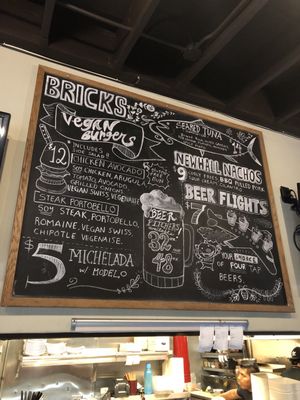 BRICKS
Vegan
Burgers
$12
INCLUDES
SIDE SALAD
CHICKEN AVOCADO
SOY CHICKEN ARUGULA
TOMATO, AVOCADO,
GRILLED ONIONS
VEGAN SWISS
STEAK PORTOBELLO
SOY STEAK, PORTOBELLO,
ROMAINE, VEGAN SWISS,
CHIPOTLE VEGENAISE.
$5 MICHELADA
W/ MODELO
SEARED TUNA
NEWHALL NACHOS
$9
CURLY FRIES, BBQ PULLED PORK
SOUR CREAM, CILANTRO
BEER
PITCHERS
BEER FLIGHTS
YOUR CHOICE
OF FOUR TAP
BEERS